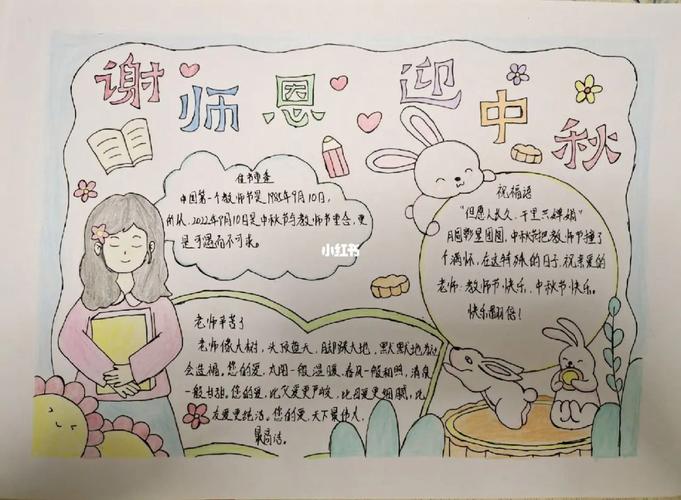 谢师恩 迎中秋
中国第一个教师节是1985年9月10日,
2022年9月10日是中秋节与教师节重合,更
是可遇而不可求。
小红书
祝福语
"但愿人长久,千里共婵娟"
月圆影星团圆,中秋节把教师节撞了
个满怀,在这特殊的日子,祝亲爱的
老师:教师节快乐,中秋节快乐。
快乐翻倍!
老师辛苦了
老师像大树,头顶蓝天,脚踩大地,默默地为社
会造福。您的爱,太阳一般温暖,春风一般和煦,清泉
一般甘甜。您的爱,比父爱更严峻,比母爱更细腻,比
友爱更纯洁。您的爱,天下最伟大,
最高洁。